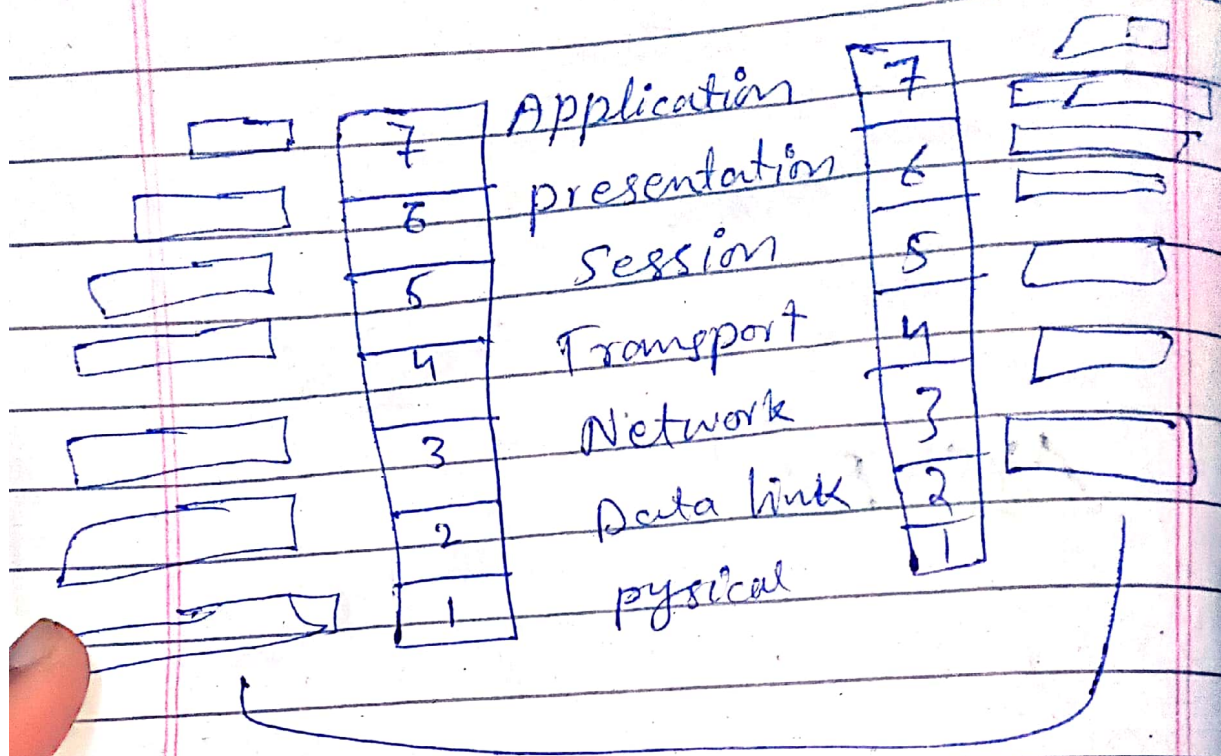 7 Application 7
6 presentation 6
5 Session 5
4 Transport 4
3 Network 3
2 Data link 2
1 pysical 1